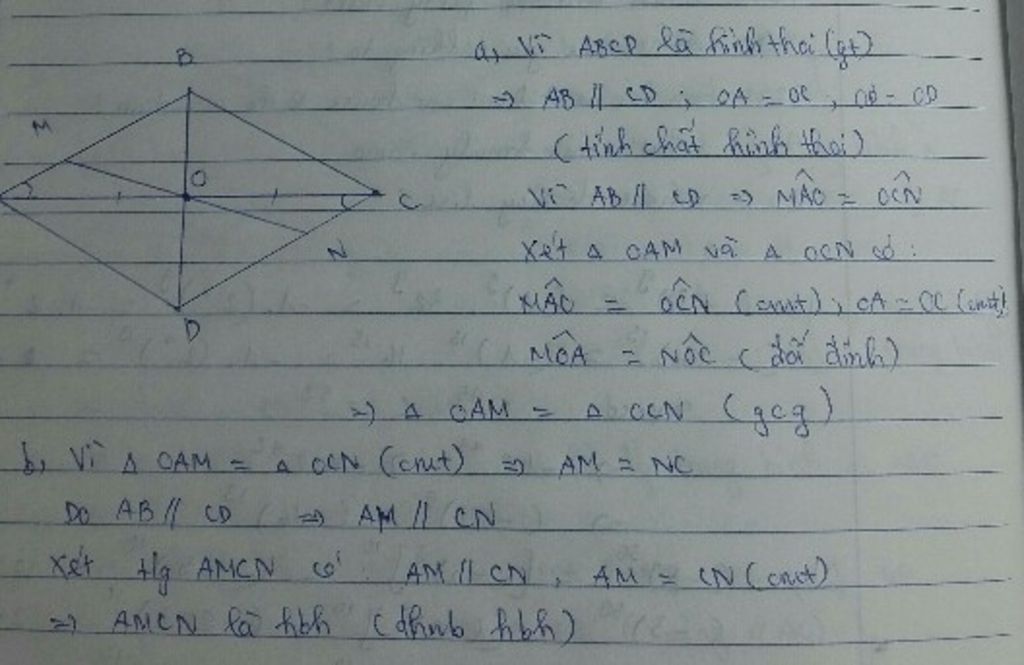 B
M
O
C
N
D
a, Vì ABCD là hình thoi (gt)
=> AB // CD ; OA = OC , OB = OD
(tính chất hình thoi)
Vì AB // CD => MÂO = OĈN
Xét Δ OAM và Δ OCN có :
MÂO = OĈN (cmt) , OA = OC (cmt),
MÔA = NÔC (đối đỉnh)
=> Δ OAM = Δ OCN (gcg)
b, Vì Δ OAM = Δ OCN (cmt) => AM = NC
Do AB // CD => AM // CN
Xét t/g AMCN có AM // CN , AM = CN (cmt)
=> AMCN là hbh (dhnb hbh)